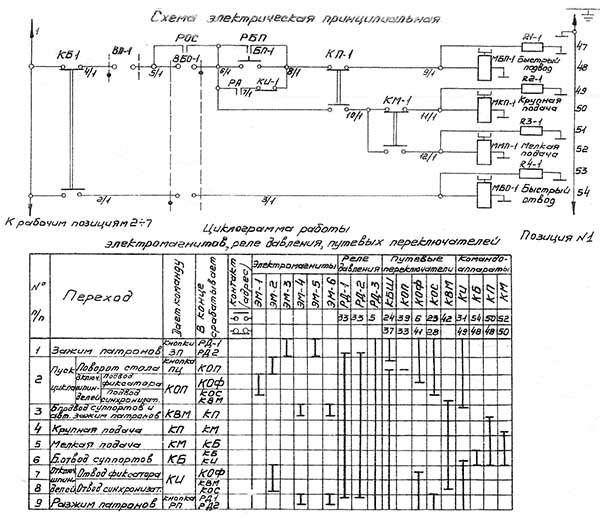 Схема электрическая принципиальная
1
КБ1
4/1
ВП-1
РОС
5/1
ВБО-1
РБП
БП-1
6/1
8/1
РД
7/1
КИ-1
КП-1
9/1
10/1
КМ-1
11/1
12/1
2/1
3/1
R1-1
47
МБП-1 Быстрый подвод
48
R2-1
49
МКП-1 Крупная подача
50
R3-1
51
ММП-1 Мелкая подача
52
R4-1
53
МБО-1 Быстрый отвод
54
К рабочим позициям 2÷7
Позиция №1
Циклограмма работы
электромагнитов, реле давления, путевых переключателей
№ п/п
Переход
Дает команду
В конце срабатывает
Контакт (адрес)
Электромагниты
ЭМ-1 ЭМ-2 ЭМ-3 ЭМ-4 ЭМ-5 ЭМ-6
Реле давления
РД-1 РД-2 РД-3
Путевые переключатели
КБШ КОП КОФ КОС КВМ
Командоаппараты
КИ КБ КП КМ
33 33 5 24 39 6 23 42 31 54 50 52
37 33 41 28 49 48 48 50
1 Зажим патронов кнопки ЗП РД-1 РД2
2 Пуск цикла Поворот стола кнопка ПЦ КОП
включ. шпинделей подвод фиксатора КОП КОФ
подвод синхронизат. КОС КВМ
3 Б.подвод суппортов и авт. зажим патронов КВМ КП
4 Крупная подача КП КМ
5 Мелкая подача КМ КБ
6 Б.отвод суппортов КБ КБ КИ
7 Отключ. шпинделей Отвод фиксатора КИ КОФ
8 Отвод синхронизат. КВМ КОС
9 Разжим патронов кнопка РП РД-1 РД2